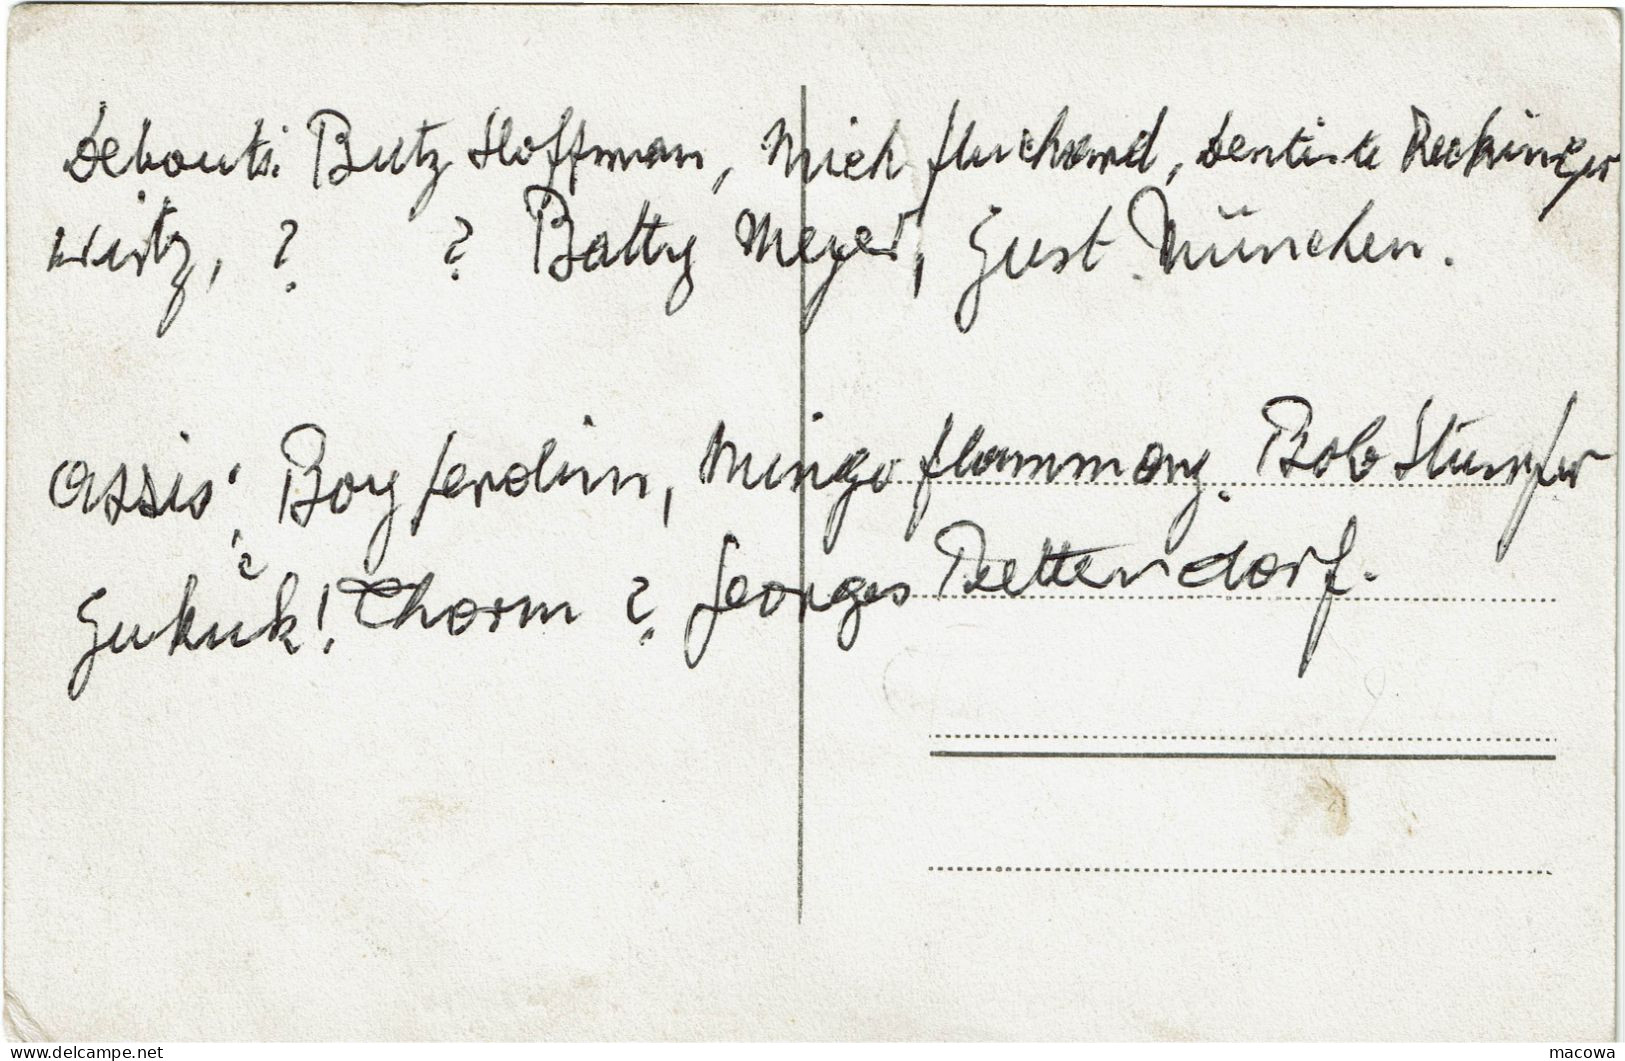 debouts: Butz Hoffman, Mich fluchard, dentiste Reckinger
Wirtz, ? ? Batty Meyer, Gust. München.
assis: Boy ferdin, Mingo flammang. Bob Stumper
? Gukuk! Thorm ? Georges Bettendorf.
macowa